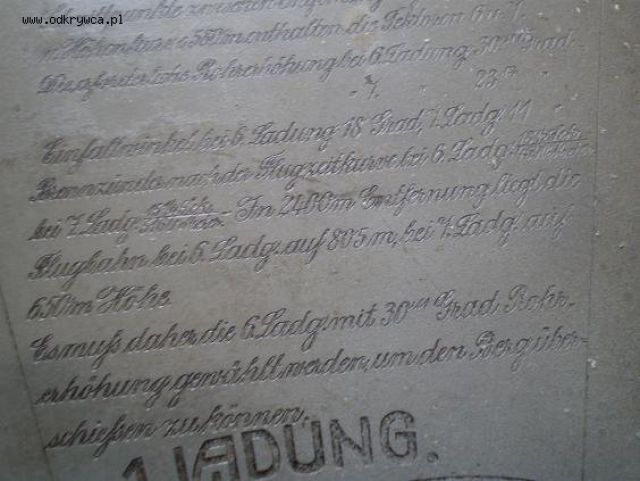 www.odkrywca.pl
in Höhenlage 560m enthalten die Sektoren 6 u. 7.
Die erforderliche Rohrerhöhung bei 6. Ladung 30 Grad.
" 7. " 23
Einfallwinkel bei 6. Ladung 18 Grad, 7. Ladg. 11 "
Brennzünder nach der Flugzeitkurve bei 6. Ladg.
bei 7. Ladg. - In 2400m Entfernung liegt die
Flugbahn bei 6. Ladg. auf 805m, bei 7. Ladg. auf
650m Höhe.
Es muß daher die 6. Ladg. mit 30 Grad Rohr-
erhöhung gewählt werden, um den Berg über-
schießen zu können.
1. LADUNG.